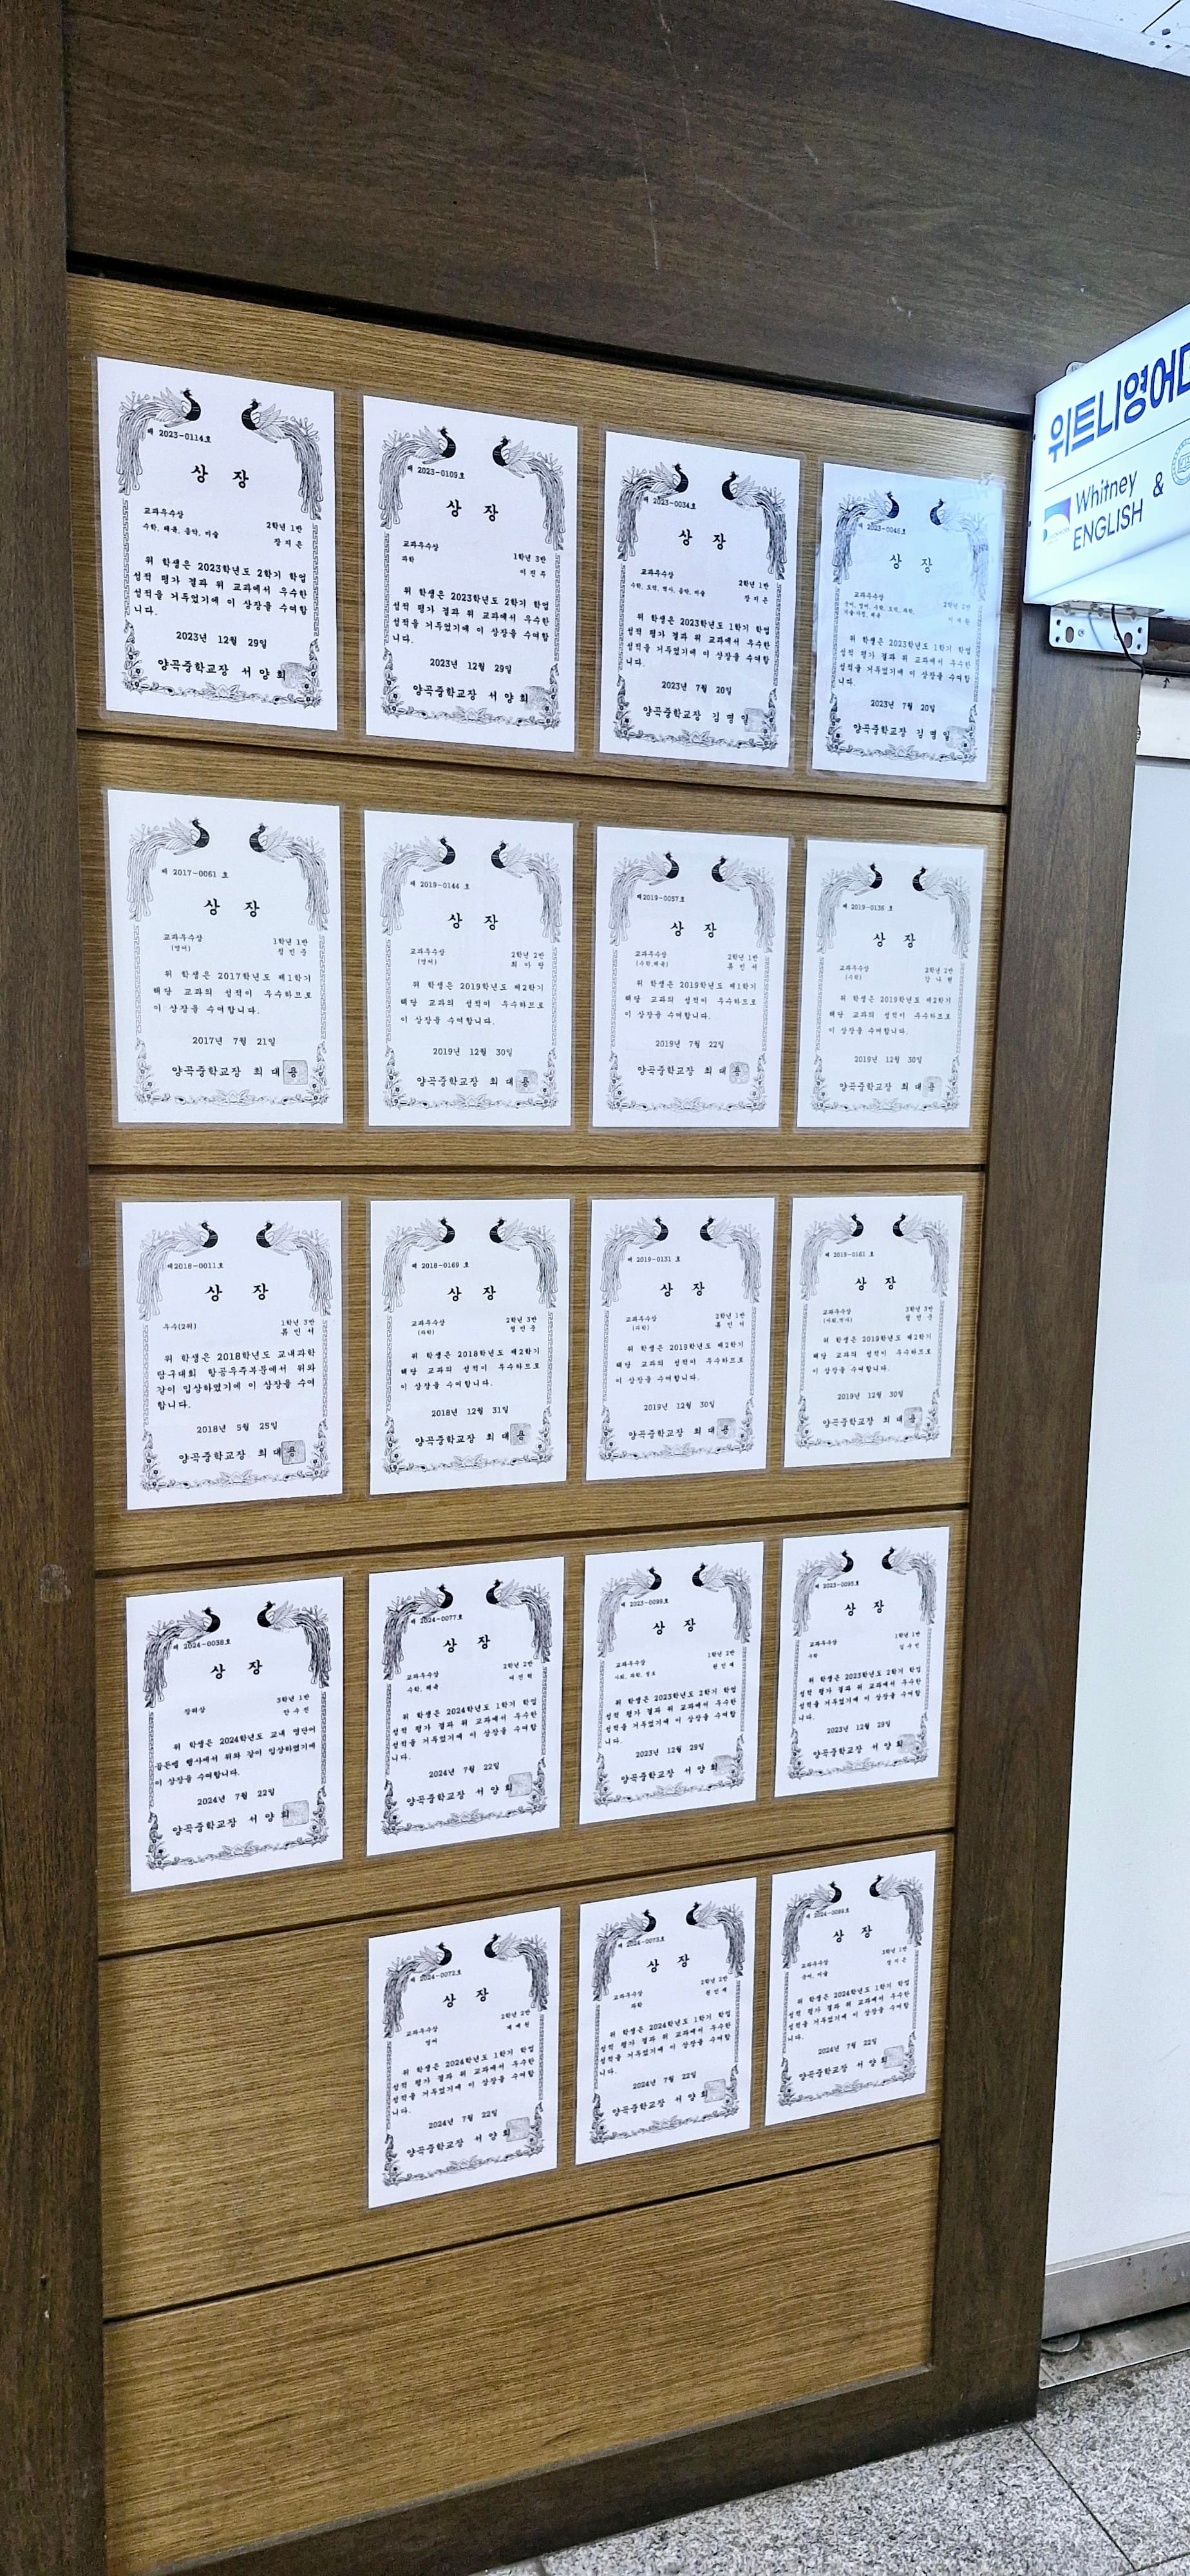 제 2023-0114호
상 장
교과우수상
수학, 체육, 음악, 미술
2학년 1반
장 지 은
위 학생은 2023학년도 2학기 학업
성적 평가 결과 위 교과에서 우수한
성적을 거두었기에 이 상장을 수여합
니다.
2023년 12월 29일
양곡중학교장 서 양 희
제 2023-0109호
상 장
교과우수상
과학
1학년 3반
위 학생은 2023학년도 2학기 학업
성적 평가 결과 위 교과에서 우수한
성적을 거두었기에 이 상장을 수여합
니다.
2023년 12월 29일
양곡중학교장 서 양 희
제 2023-0034호
상 장
교과우수상
수학, 도덕, 역사, 음악, 미술
2학년 1반
장 지 은
위 학생은 2023학년도 1학기 학업
성적 평가 결과 위 교과에서 우수한
성적을 거두었기에 이 상장을 수여합
니다.
2023년 7월 20일
양곡중학교장 김 명 일
상 장
교과우수상
국어, 영어, 수학, 도덕, 과학,
2학년 2반
위 학생은 2023학년도 1학기 학업
성적 평가 결과 위 교과에서 우수한
성적을 거두었기에 이 상장을 수여합
니다.
2023년 7월 20일
양곡중학교장 김 명 일
위트니영어
Whitney
ENGLISH
&
제 2017-0061 호
상 장
교과우수상
(영어)
1학년 1반
정 민 준
위 학생은 2017학년도 제1학기
해당 교과의 성적이 우수하므로
이 상장을 수여합니다.
2017년 7월 21일
양곡중학교장 최 대 용
제 2019-0144 호
상 장
교과우수상
(영어)
2학년 2반
위 학생은 2019학년도 제2학기
해당 교과의 성적이 우수하므로
이 상장을 수여합니다.
2019년 12월 30일
양곡중학교장 최 대 용
제2019-0057호
상 장
교과우수상
(수학,체육)
2학년 1반
류 민 서
위 학생은 2019학년도 제1학기
해당 교과의 성적이 우수하므로
이 상장을 수여합니다.
2019년 7월 22일
양곡중학교장 최 대 용
제 2019-0136 호
상 장
교과우수상
(수학)
2학년 2반
위 학생은 2019학년도 제2학기
해당 교과의 성적이 우수하므로
이 상장을 수여합니다.
2019년 12월 30일
양곡중학교장 최 대 용
제2018-0011호
상 장
우수(2위)
1학년 3반
류 민 서
위 학생은 2018학년도 교내과학
탐구대회 항공우주부문에서 위와
같이 입상하였기에 이 상장을 수여
합니다.
2018년 5월 25일
양곡중학교장 최 대 용
제 2018-0169 호
상 장
교과우수상
(과학)
2학년 3반
정 민 준
위 학생은 2018학년도 제2학기
해당 교과의 성적이 우수하므로
이 상장을 수여합니다.
2018년 12월 31일
양곡중학교장 최 대 용
제 2019-0131 호
상 장
교과우수상
(과학)
2학년 1반
류 민 서
위 학생은 2019학년도 제2학기
해당 교과의 성적이 우수하므로
이 상장을 수여합니다.
2019년 12월 30일
양곡중학교장 최 대 용
제 2019-0161 호
상 장
교과우수상
(사회,역사)
3학년 3반
정 민 준
위 학생은 2019학년도 제2학기
해당 교과의 성적이 우수하므로
이 상장을 수여합니다.
2019년 12월 30일
양곡중학교장 최 대 용
제 2024-0038호
상 장
장려상
3학년 1반
안 수 진
위 학생은 2024학년도 교내 영단어
골든벨 행사에서 위와 같이 입상하였기에
이 상장을 수여합니다.
2024년 7월 22일
양곡중학교장 서 양 희
제 2024-0077호
상 장
교과우수상
수학, 체육
2학년 2반
위 학생은 2024학년도 1학기 학업
성적 평가 결과 위 교과에서 우수한
성적을 거두었기에 이 상장을 수여합
니다.
2024년 7월 22일
양곡중학교장 서 양 희
제 2023-0099호
상 장
교과우수상
사회, 과학, 정보
1학년 2반
위 학생은 2023학년도 2학기 학업
성적 평가 결과 위 교과에서 우수한
성적을 거두었기에 이 상장을 수여합
니다.
2023년 12월 29일
양곡중학교장 서 양 희
제 2023-0095호
상 장
교과우수상
수학
1학년 1반
위 학생은 2023학년도 2학기 학업
성적 평가 결과 위 교과에서 우수한
성적을 거두었기에 이 상장을 수여합
니다.
2023년 12월 29일
양곡중학교장 서 양 희
제 2024-0072호
상 장
교과우수상
영어
2학년 2반
위 학생은 2024학년도 1학기 학업
성적 평가 결과 위 교과에서 우수한
성적을 거두었기에 이 상장을 수여합
니다.
2024년 7월 22일
양곡중학교장 서 양 희
제 2024-0073호
상 장
교과우수상
과학
2학년 2반
위 학생은 2024학년도 1학기 학업
성적 평가 결과 위 교과에서 우수한
성적을 거두었기에 이 상장을 수여합
니다.
2024년 7월 22일
양곡중학교장 서 양 희
상 장
교과우수상
국어, 미술
3학년 1반
장 지 은
위 학생은 2024학년도 1학기 학업
성적 평가 결과 위 교과에서 우수한
성적을 거두었기에 이 상장을 수여합
니다.
2024년 7월 22일
양곡중학교장 서 양 희